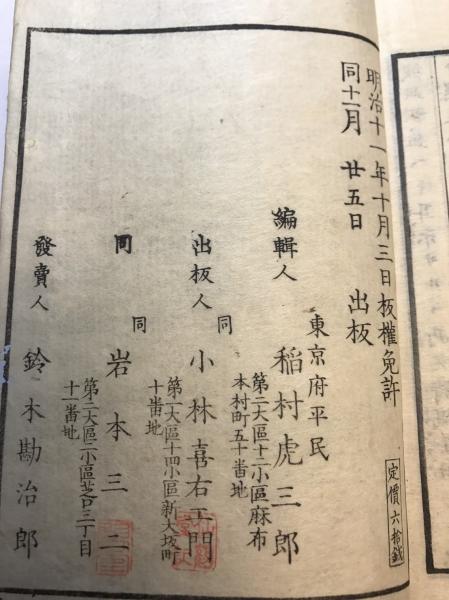 明治十一年十月三日板權免許
同十一月廿五日 出板
定價六拾錢
編輯人
東京府平民
稲村虎三郎
第二大區十二小區麻布
本村町五十番地
出板人
同
小林喜右エ門
第一大區十四小區新大坂町
十番地
同
同
岩本三二
第二大區二小區芝口三丁目
十一番地
發賣人
鈴木勘治郎